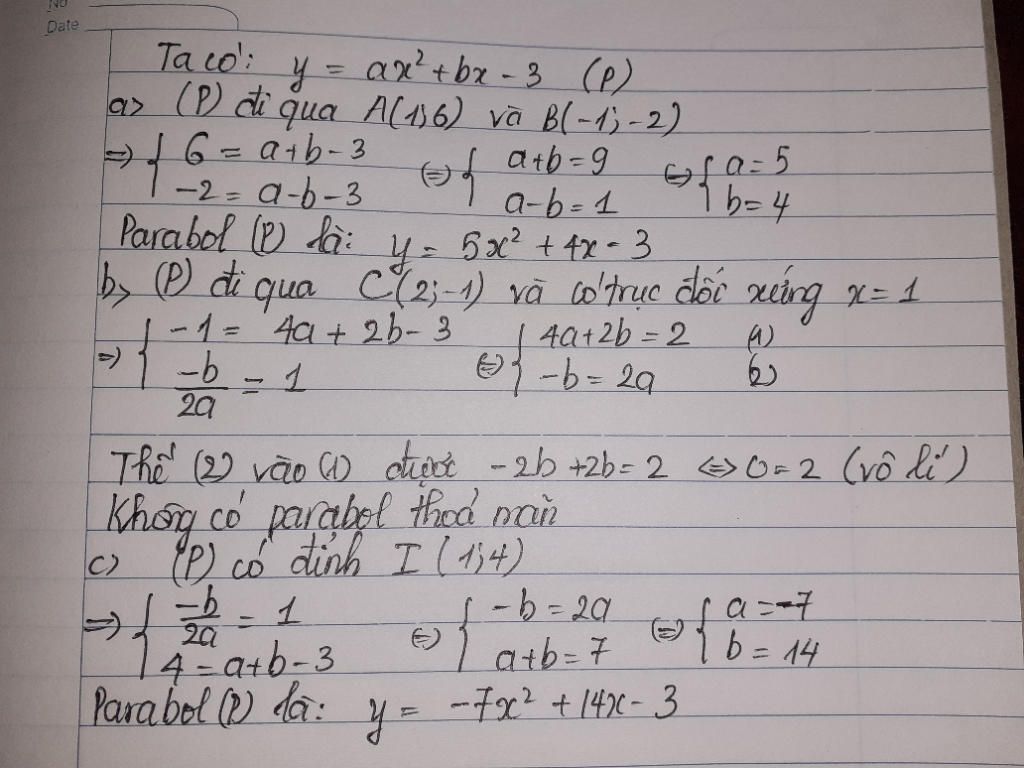 No
Date
Ta có: y = ax² + bx - 3 (P)
a> (P) đi qua A(1;6) và B(-1;-2)
=> { 6 = a+b-3 <=> { a+b=9 <=> { a=5
-2 = a-b-3 a-b=1 b=4
Parabol (P) là: y = 5x² + 4x - 3
b> (P) đi qua C(2;-1) và có trục đối xứng x=1
=> { -1 = 4a + 2b - 3 <=> { 4a+2b=2 (1)
-b/2a = 1 -b=2a (2)
Thế (2) vào (1) được -2b+2b=2 <=> 0=2 (vô lí)
Không có parabol thoả mãn
c> (P) có đỉnh I (1;4)
=> { -b/2a = 1 <=> { -b=2a <=> { a=-7
4=a+b-3 a+b=7 b=14
Parabol (P) là: y = -7x² + 14x - 3